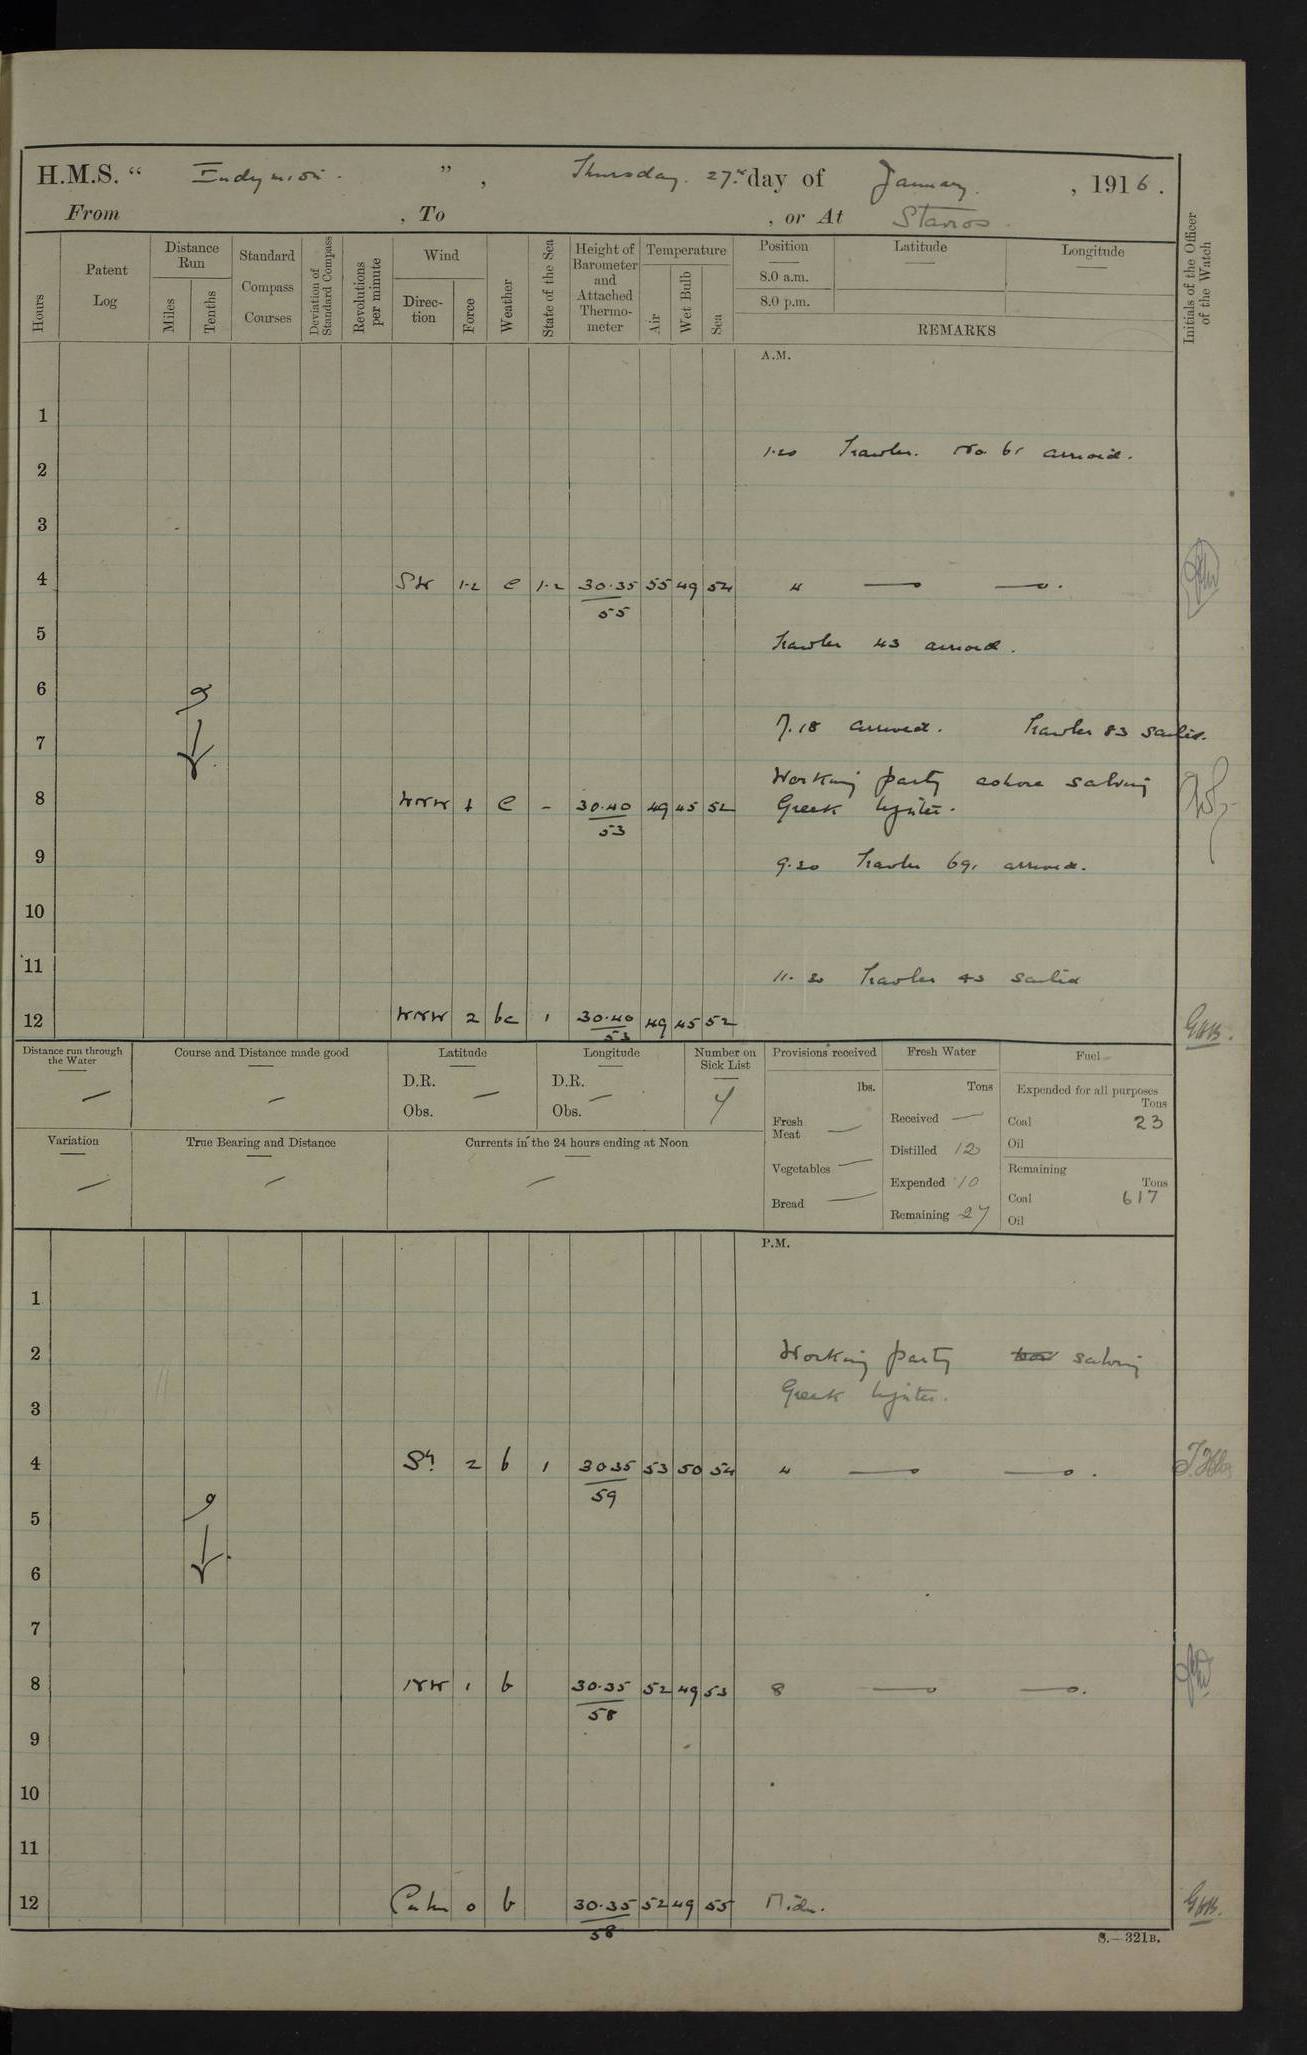 H.M.S. “ Endymion. ” , Thursday. 27th day of January. , 1916.
From , To , or At Stavros.
Hours
Patent Log
Distance Run
Miles
Tenths
Standard Compass Courses
Deviation of Standard Compass
Revolutions per minute
Wind
Direc-tion
Force
Weather
State of the Sea
Height of Barometer and Attached Thermo-meter
Temperature
Air
Wet Bulb
Sea
Position
8.0 a.m.
8.0 p.m.
Latitude
Longitude
REMARKS
Initials of the Officer of the Watch
A.M.
1
1.20 Trawler. No. 61 arrived.
2
3
4 SW 1.2 c 1.2 30.35 55 49 54 " — — .
55
5 Trawler 43 arrived.
6
7.18 arrived. Trawler 83 sailed.
7
Working party ashore salving
8 WNW 1 c - 30.40 49 45 52 Greek lighter.
53
9 9.20 Trawler 69. arrived.
10
11 11.20 Trawler 43 sailed
12 WNW 2 bc 1 30.40 49 45 52
53
Distance run through the Water
—
Course and Distance made good
—
Latitude
D.R.
Obs. —
Longitude
D.R.
Obs. —
Number on Sick List
4
Provisions received
lbs.
Fresh Meat —
Vegetables —
Bread —
Fresh Water
Tons
Received —
Distilled 12
Expended 10
Remaining 27
Fuel
Expended for all purposes
Tons
Coal 23
Oil
Remaining
Tons
Coal 617
Oil
Variation
—
True Bearing and Distance
—
Currents in the 24 hours ending at Noon
—
P.M.
1
2 Working party salving
3 Greek lighter.
4 2 b 1 30 35 53 50 54 " — — .
59
5
6
7
8 NW 1 b 30.35 52 49 53 8 — — .
58
9
10
11
12 Calm 0 b 30.35 52 49 55 Midn.
58
S.—321B.